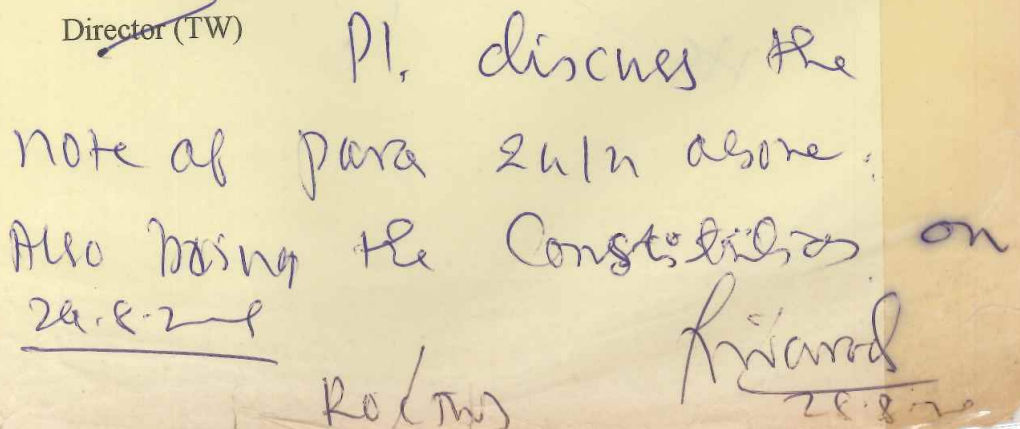 Director (TW)
Pl. discuss the
note of para 24/n above.
Also bring the Constitution on
RO (TW)